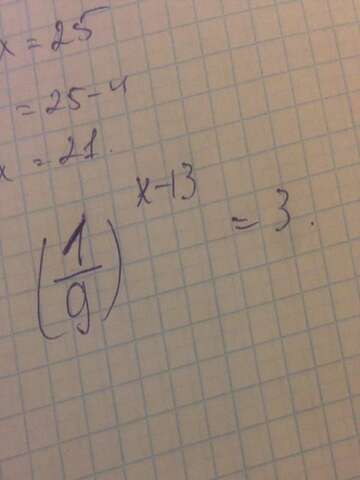 x = 25
= 25-4
x = 21.
(1/9)^(x-13) = 3.